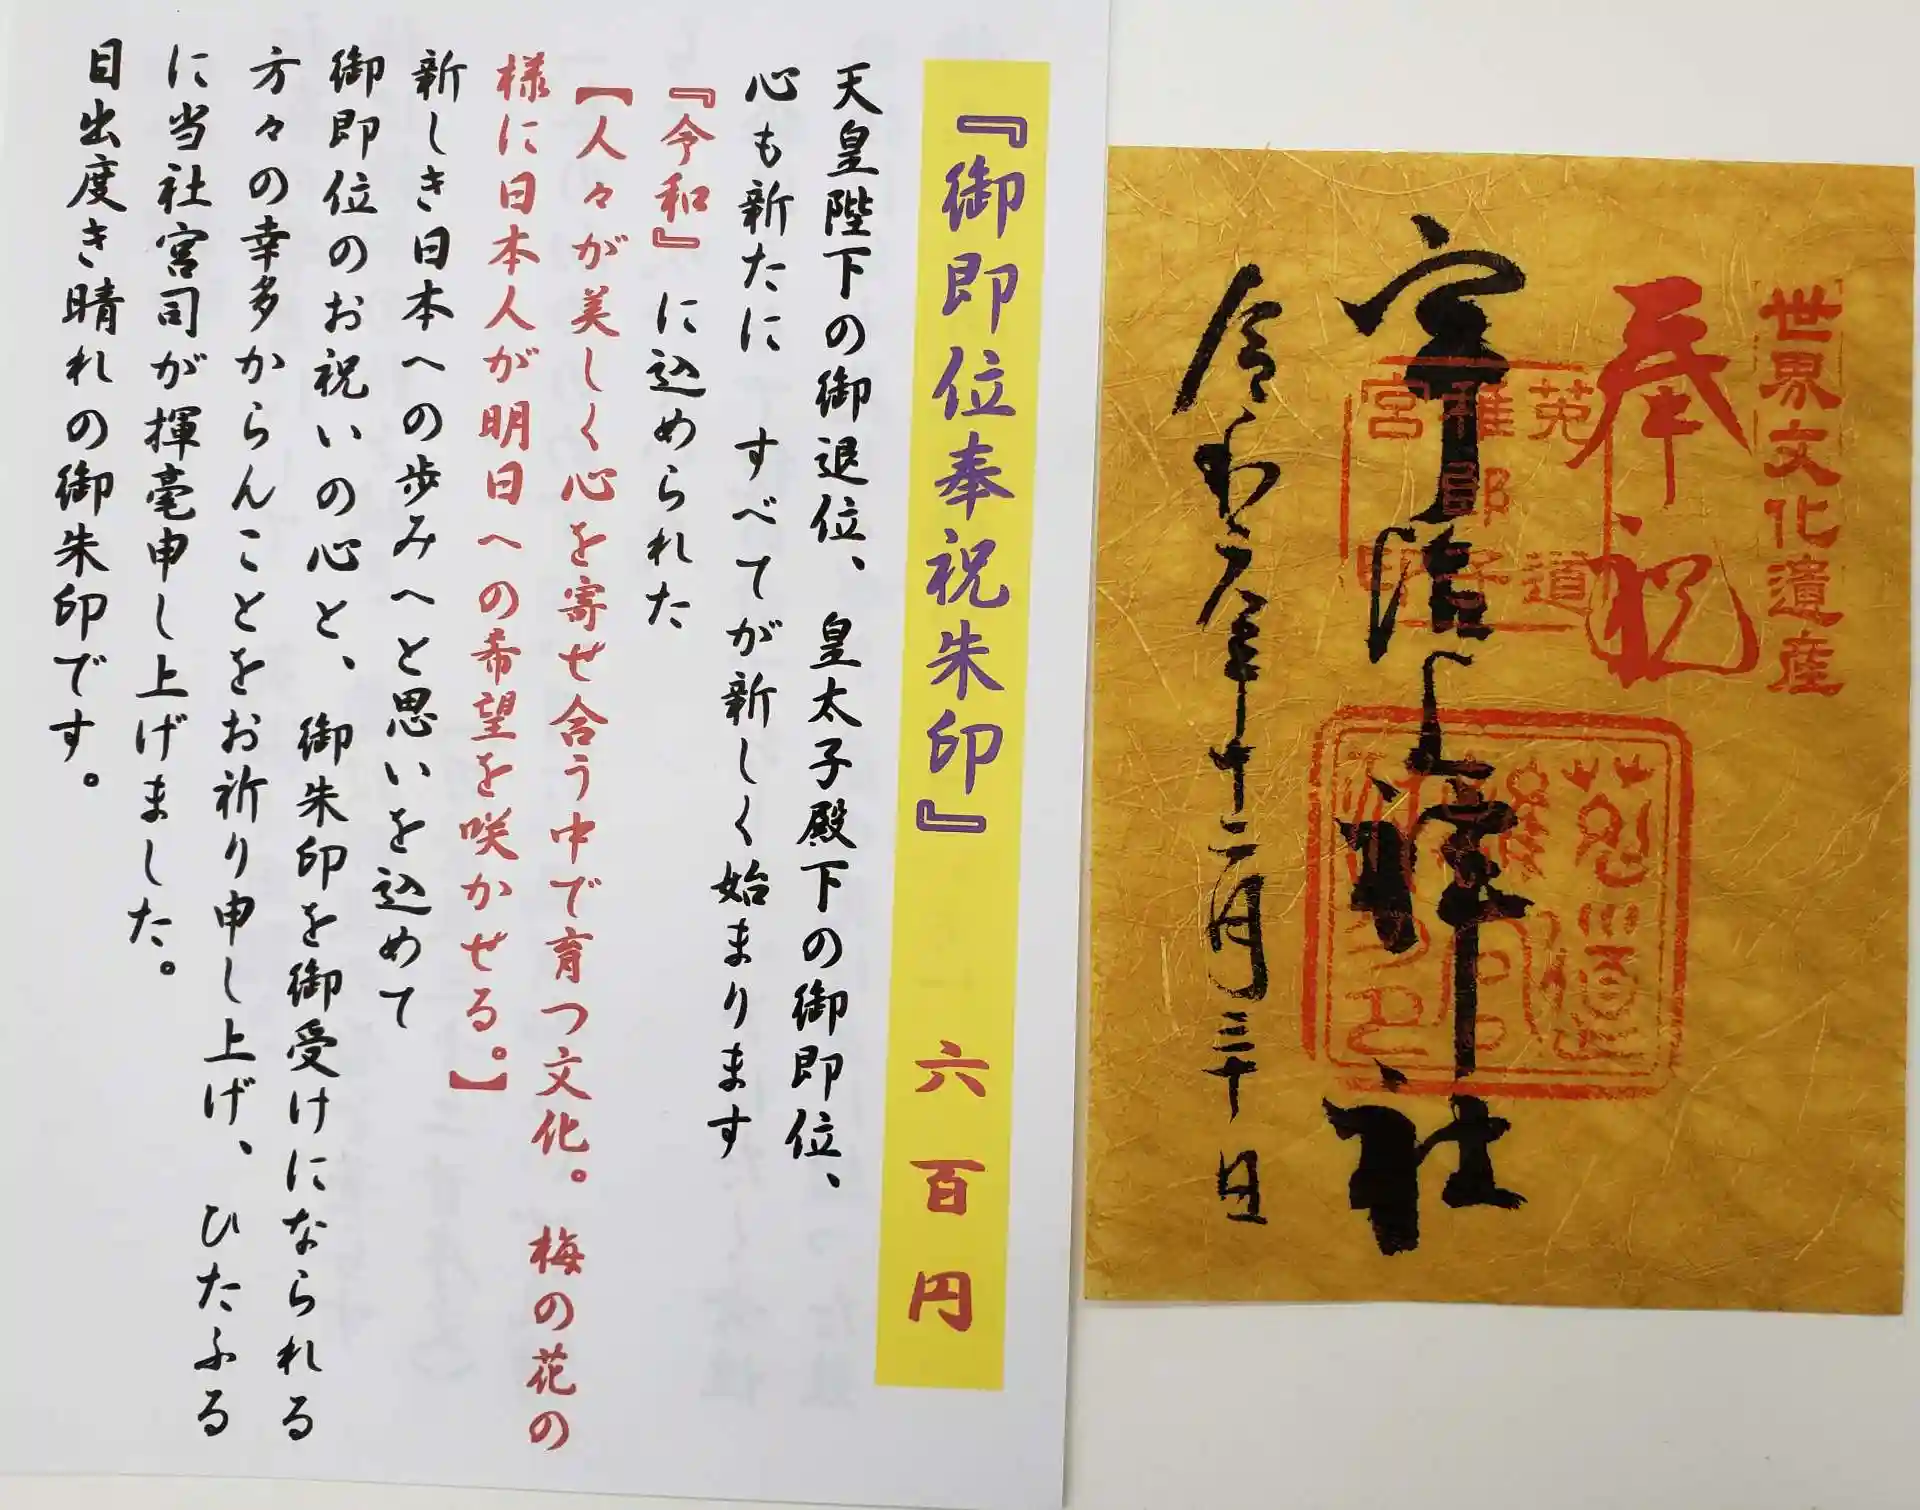 『御即位奉祝朱印』 六百円
天皇陛下の御退位、皇太子殿下の御即位、
心も新たに　すべてが新しく始まります
『令和』に込められた
【人々が美しく心を寄せ合う中で育つ文化。梅の花の
様に日本人が明日への希望を咲かせる。】
新しき日本への歩みへと思いを込めて
御即位のお祝いの心と、御朱印を御受けになられる
方々の幸多からんことをお祈り申し上げ、ひたふる
に当社宮司が揮毫申し上げました。
目出度き晴れの御朱印です。
世界文化遺産
奉祝
宇治上神社
令和元年十二月三十日